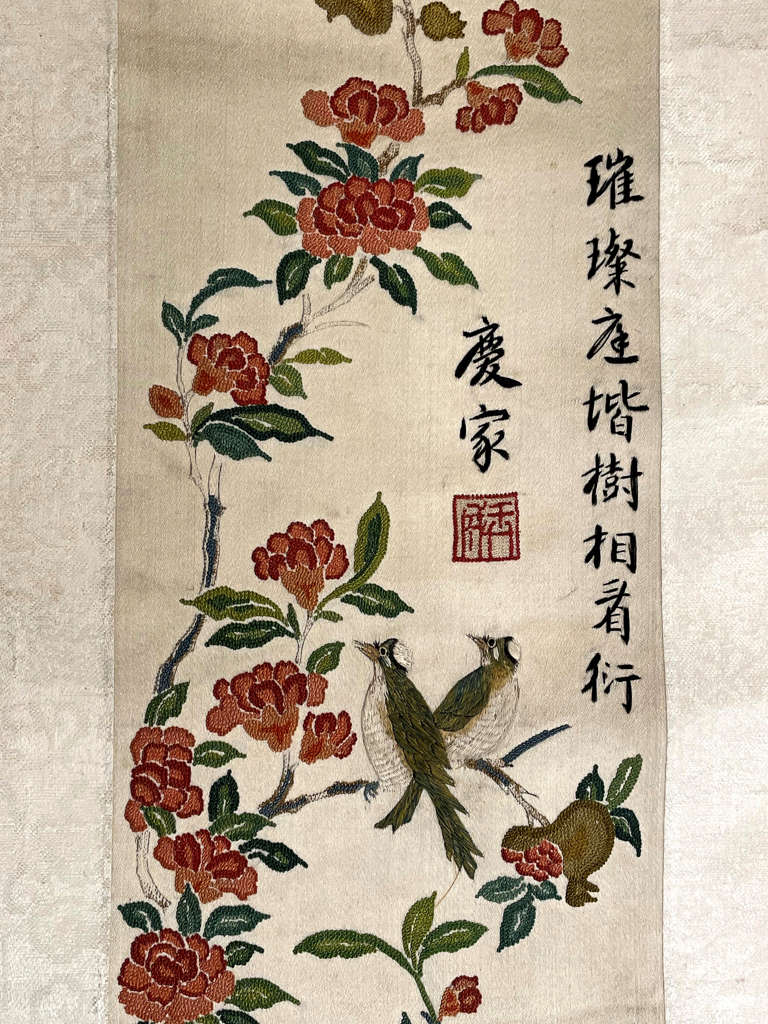 璀璨庭堦樹相看衍
慶家